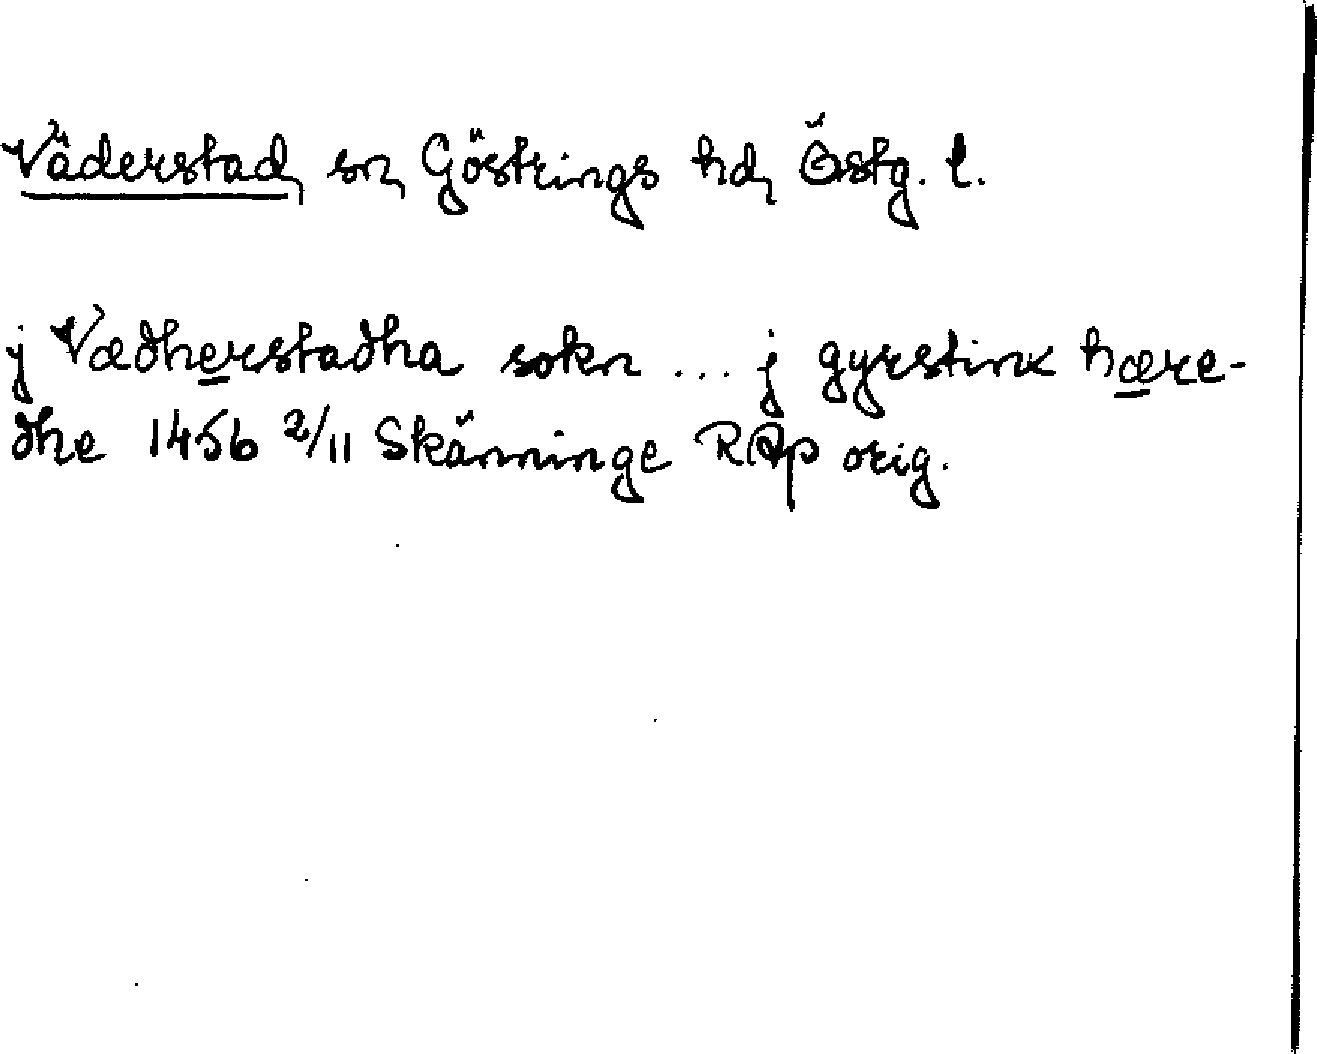 Väderstad, sn, Göstrings hd, Östg. l.
j Vædherstadha sokn ... j gyrstinx hære-
dhe 1456 2/11 Skänninge RAp orig.